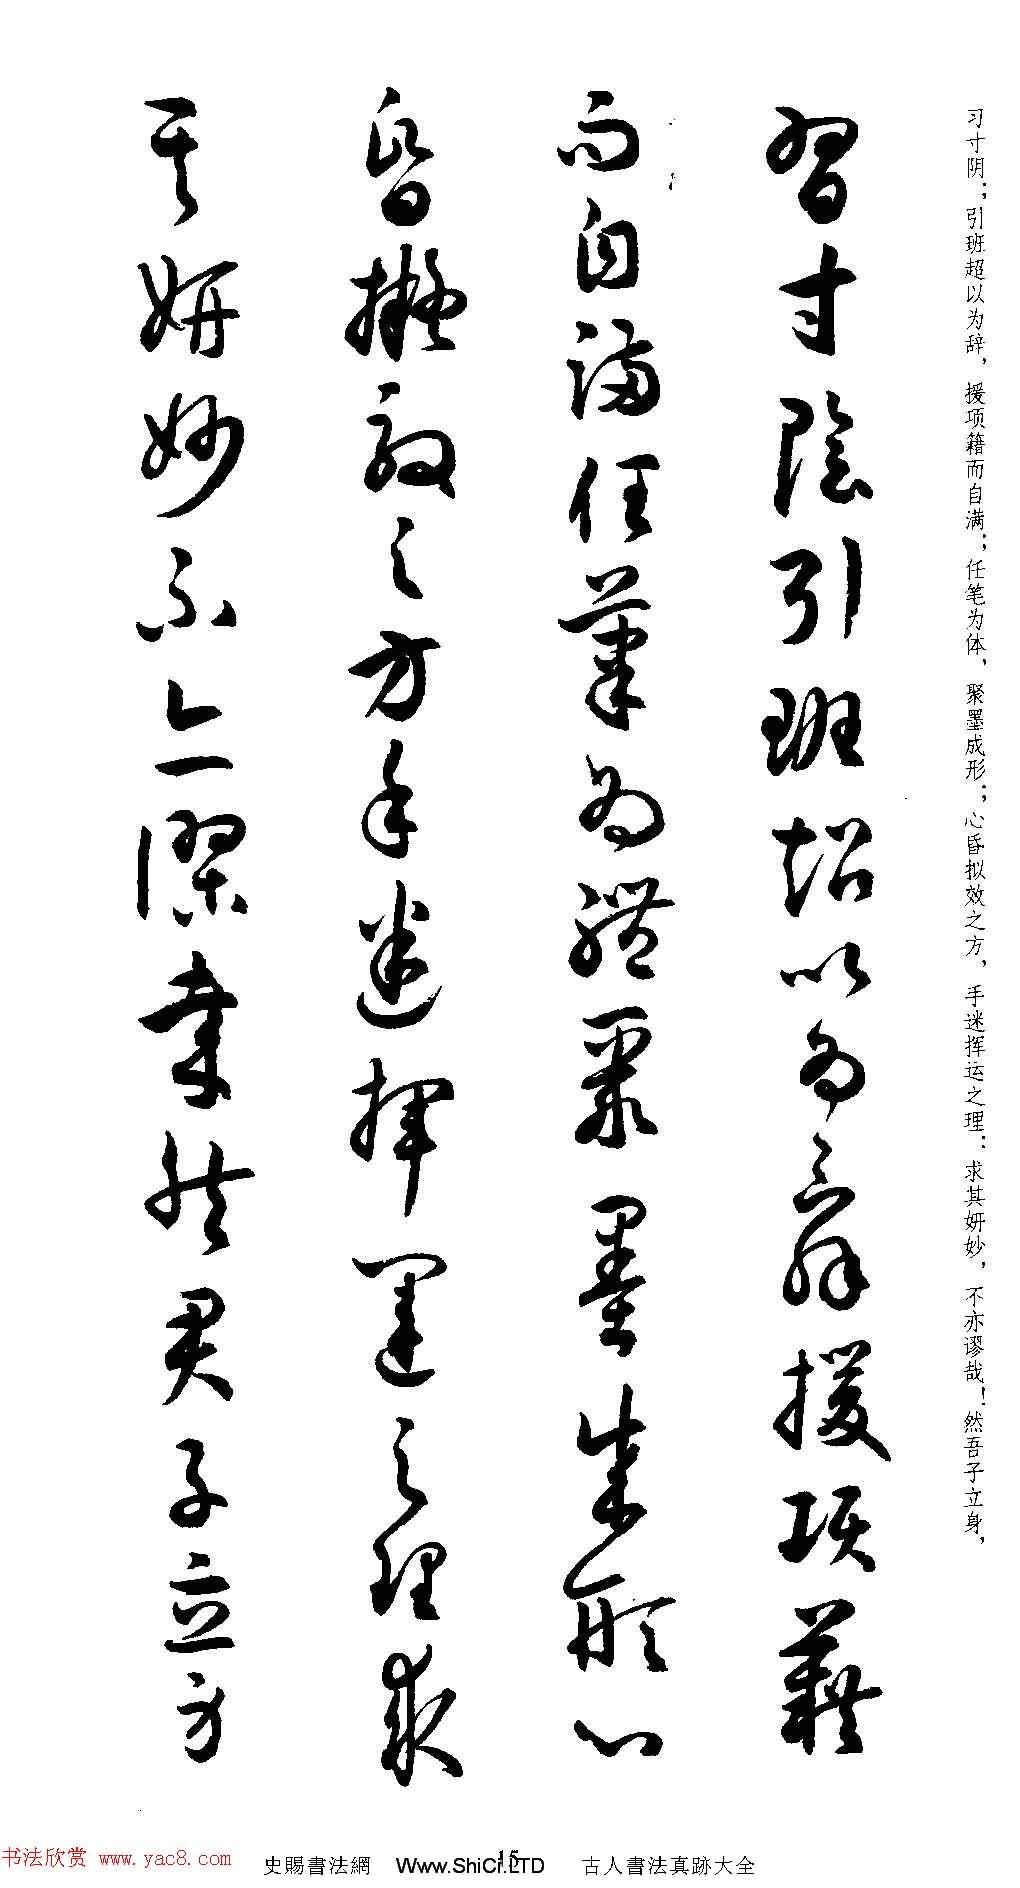 习寸阴；引班超以为辞，援项籍而自满；任笔为体，聚墨成形；心昏拟效之方，手迷挥运之理：求其妍妙，不亦谬哉！然吾子立身，
習寸陰引班超以為辭援項籍
而自滿任筆為體聚墨成形心
昏擬效之方手迷揮運之理求
其妍妙不亦謬哉然君子立身
15
书法欣赏 www.yac8.com
史賜書法網 Www.ShiCi.LTD 古人書法真跡大全